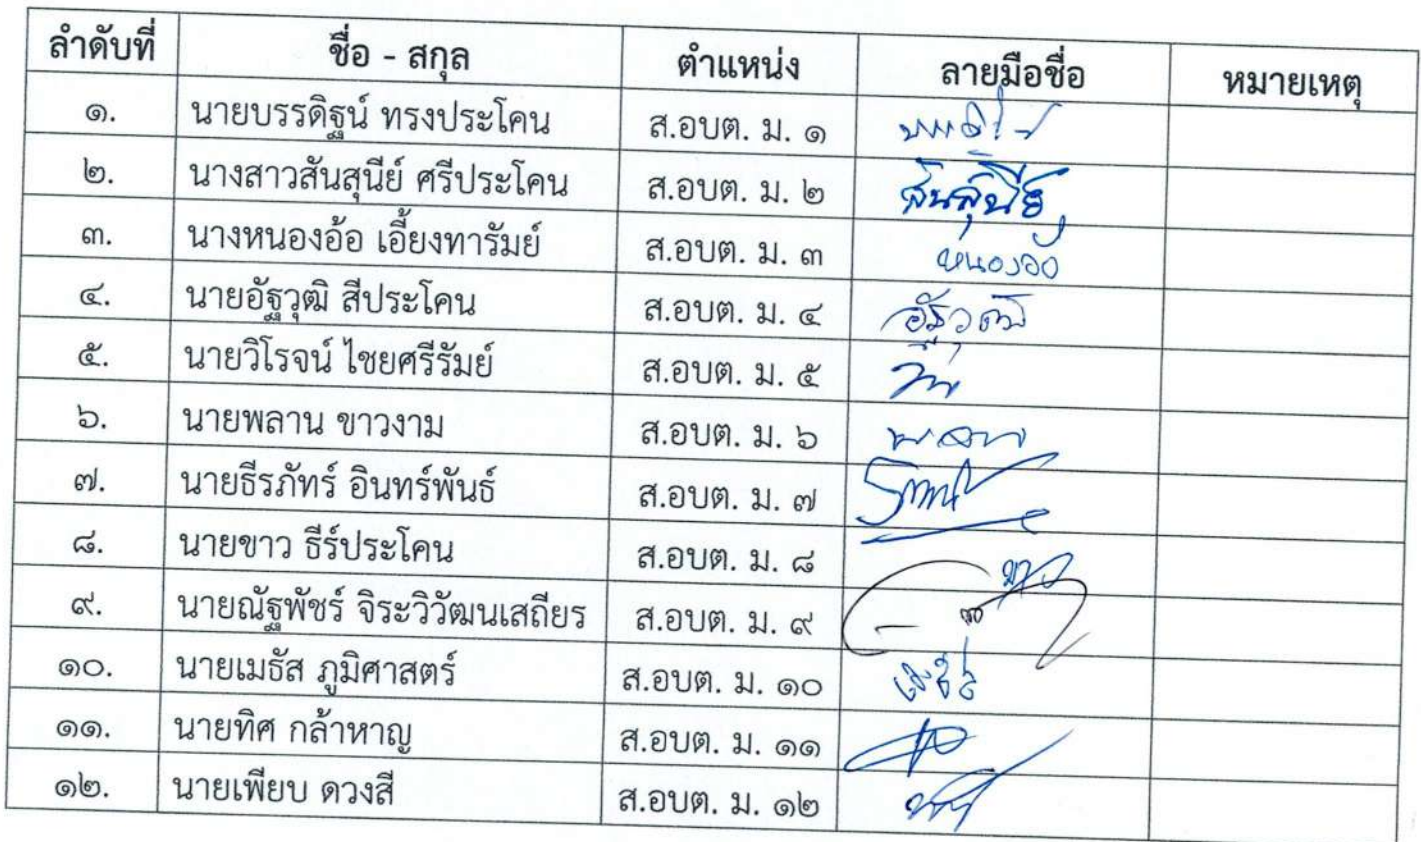 ลำดับที่ ชื่อ - สกุล ตำแหน่ง ลายมือชื่อ หมายเหตุ
๑. นายบรรดิฐน์ ทรงประโคน ส.อบต. ม. ๑
๒. นางสาวสันสุนีย์ ศรีประโคน ส.อบต. ม. ๒ สันสุนีย์
๓. นางหนองอ้อ เอี้ยงทารัมย์ ส.อบต. ม. ๓ หนองอ้อ
๔. นายอัฐวุฒิ สีประโคน ส.อบต. ม. ๔ อัฐวุฒิ
๕. นายวิโรจน์ ไชยศรีรัมย์ ส.อบต. ม. ๕
๖. นายพลาน ขาวงาม ส.อบต. ม. ๖ พลาน
๗. นายธีรภัทร์ อินทร์พันธ์ ส.อบต. ม. ๗
๘. นายขาว ธีร์ประโคน ส.อบต. ม. ๘ ขาว
๙. นายณัฐพัชร์ จิระวิวัฒนเสถียร ส.อบต. ม. ๙
๑๐. นายเมธัส ภูมิศาสตร์ ส.อบต. ม. ๑๐ เมธัส
๑๑. นายทิศ กล้าหาญ ส.อบต. ม. ๑๑
๑๒. นายเพียบ ดวงสี ส.อบต. ม. ๑๒